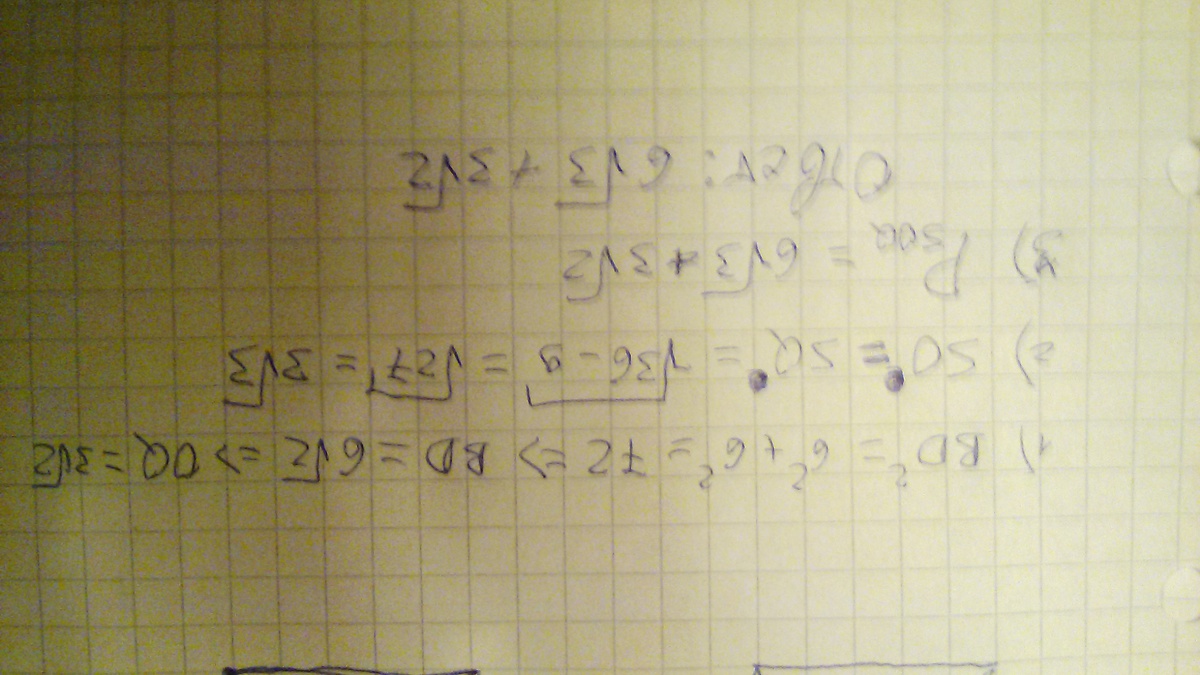 1) BD² = 6² + 6² = 72 => BD = 6√2 => OQ = 3√2
2) SO = SQ = √36-9 = √27 = 3√3
3) P SOQ = 6√3 + 3√2
Ответ: 6√3 + 3√2